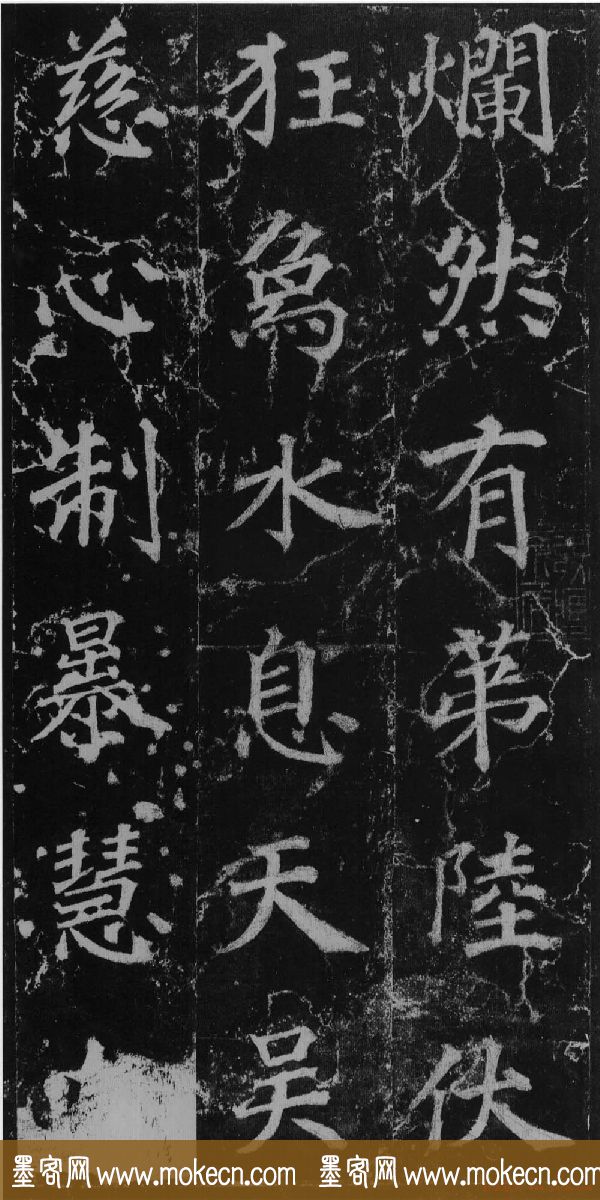 爛然有第陸伏
狂象水息天吴
慈心制暴慧
墨客网 www.mokecn.com 墨客网 www.mokecn.com